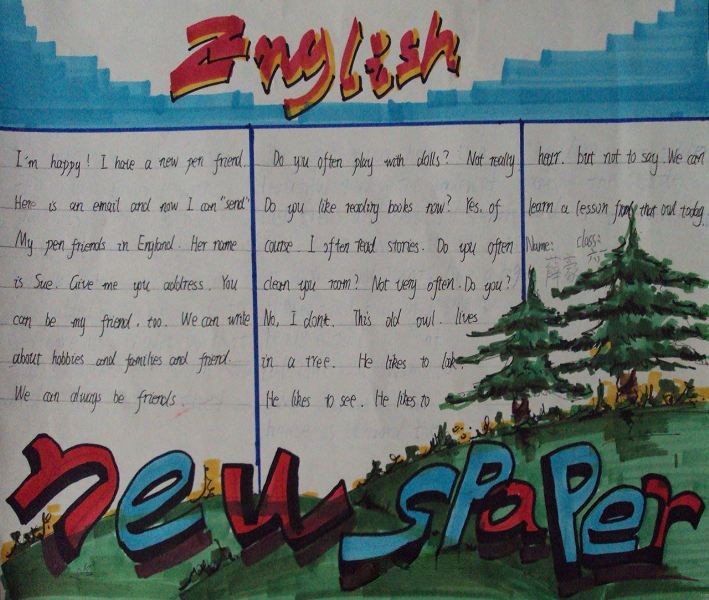 English
I'm happy! I have a new pen friend.
Here is an email and now I can "send"
My pen friends in England. Her name
is Sue. Give me you address. You
can be my friend, too. We can write
about hobbies and families and friend.
We can always be friends.
Do you often play with dolls? Not really
Do you like reading books now? Yes, of
course. I often read stories. Do you often
clean you room? Not very often. Do you?
No, I dont. This old owl. lives
in a tree. He likes to look.
He likes to see. He likes to
hear. but not to say. We can
learn a lesson from that owl today.
Name: class:
newspaper